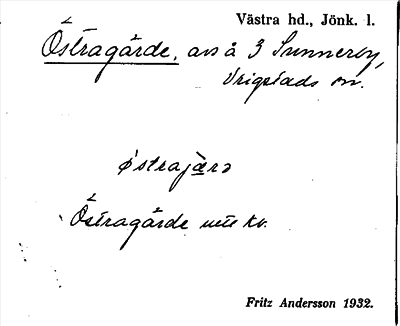 Västra hd., Jönk. l.
Östragärde, avs å 3 Sunnerby,
Vrigstads sn.
østrajæ̀rə
Östragärde ute kv.
Fritz Andersson 1932.